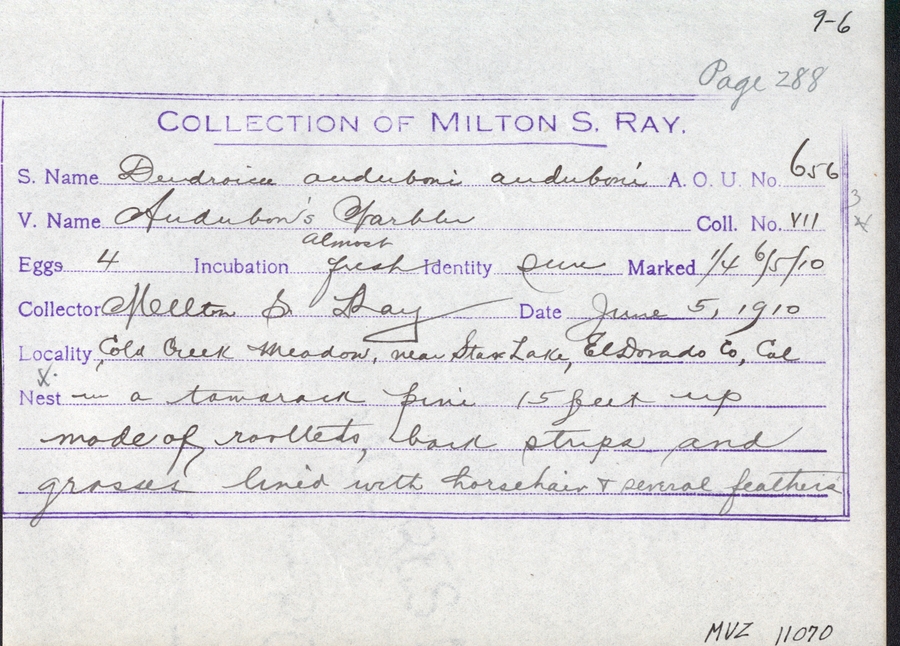 9-6
Page 288
COLLECTION OF MILTON S. RAY.
S. Name Dendroica auduboni auduboni A. O. U. No. 656
V. Name Audubon's Warbler Coll. No. VII
almost
Eggs 4 Incubation fresh Identity Sure Marked 1/4 6/5/10
Collector Milton S. Ray Date June 5, 1910
Locality Cold Creek Meadow, near Star Lake, El Dorado Co, Cal
X.
Nest in a tamarack pine 15 feet up
made of rootlets, bark strips and
grasses lined with horsehair & several feathers
MVZ 11070